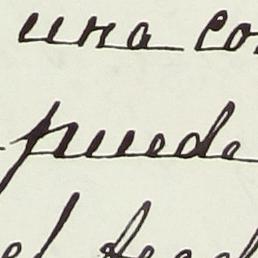 una co
puede
el